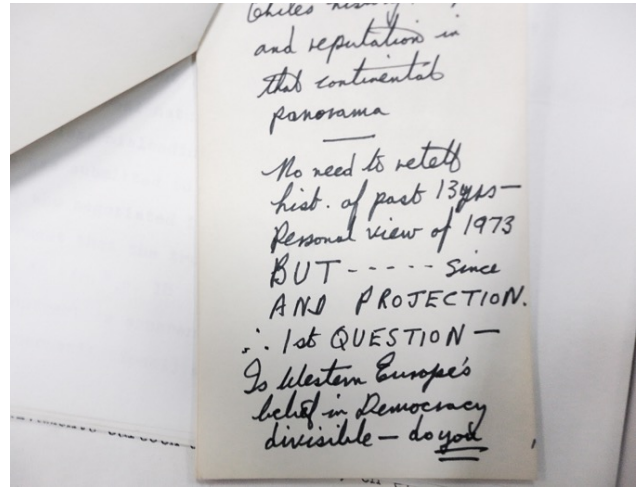 Chiles history
and reputation in
that continental
panorama
No need to retell
hist. of past 13yrs —
Personal view of 1973
BUT - - - - - - Since
AND PROJECTION.
∴ 1st QUESTION —
Is Western Europe's
belief in Democracy
divisible — do you